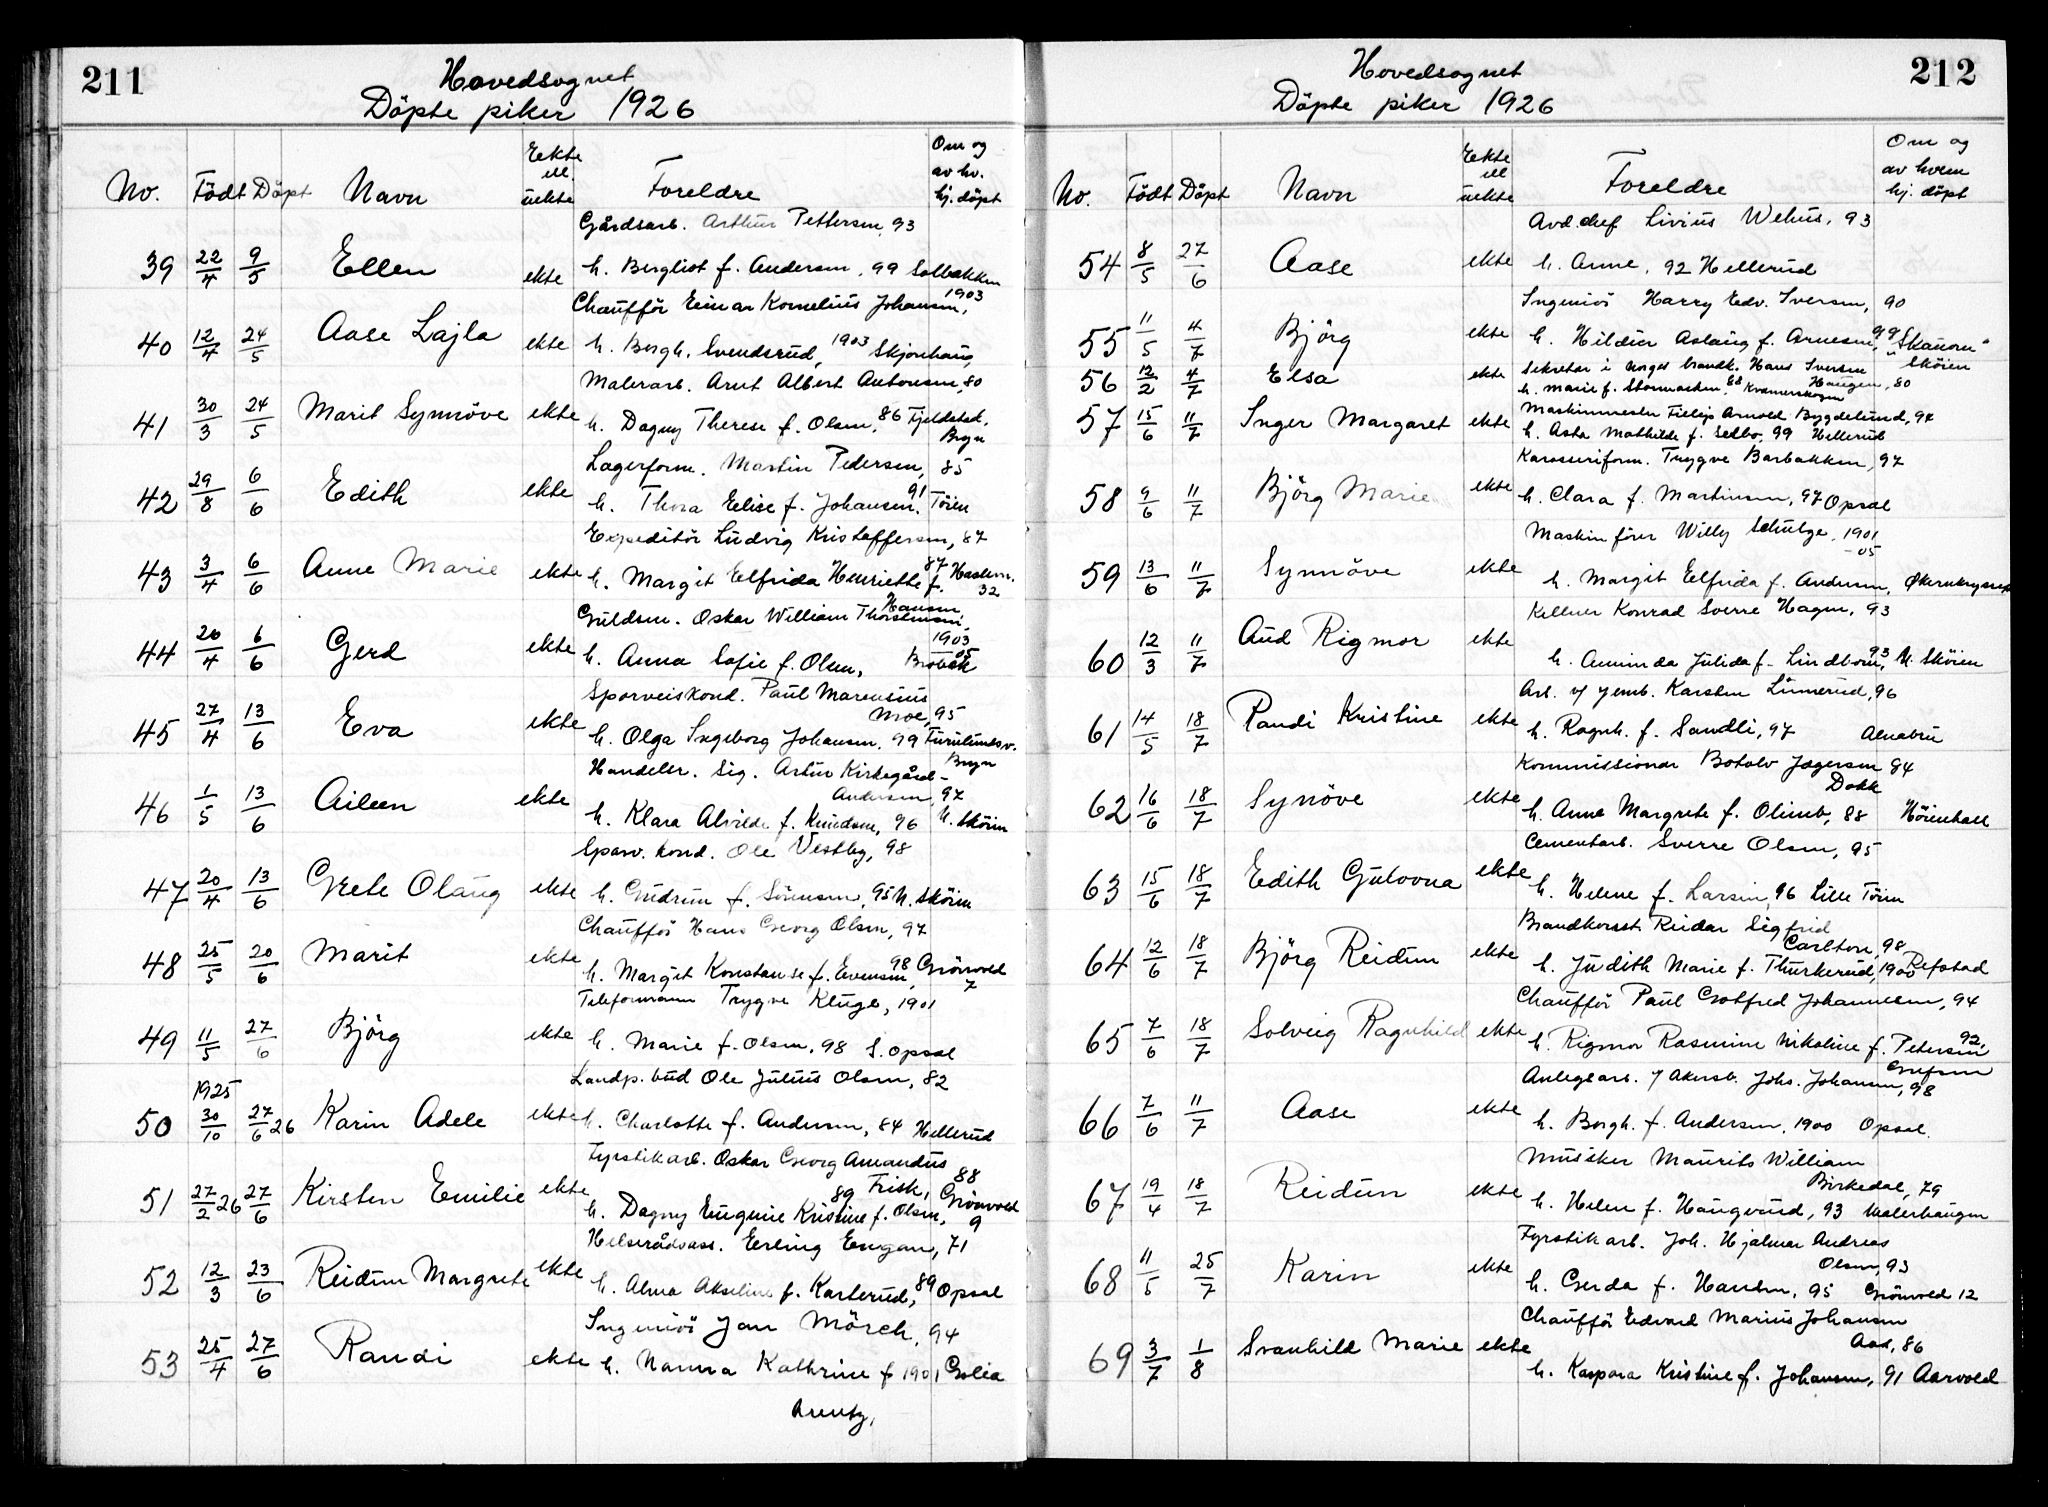 211
Hovedsognet
Döpte piker 1926
No. Födt Döpt Navn Eekte ell uekte Foreldre Om og av hv. hj. döpt
Gårdsarb. Arthur Pettersen, 93
39 22/4 9/5 Ellen ekte h. Bergliot f. Andersen, 99 Solbakken
Chaufför Einar Kornelius Johansen, 1903
40 12/4 24/5 Aase Lajla ekte h. Borgh. Svendsrud, 1903 Skjonhaug
Malerarb. Arnt Albert Antonsen, 80
41 30/3 24/5 Marit Synnöve ekte h. Dagny Therese f. Olsen, 86 Fjeldstad,
Bryn
Lagerform. Martin Pedersen, 85
42 29/8 6/6 Edith ekte h. Thora Elise f. Johansen, 91 Töien
Expeditör Ludvig Kristoffersen, 87
43 3/4 6/6 Anne Marie ekte h. Margit Elfrida Henriette f. 87 Haslem. 32
Hansen
Guldsm. Oskar William Thorstensen, 1903
44 20/4 6/6 Gerd ekte h. Anna Sofie f. Olsen, 05 Brobæk
Sporveiskond. Paul Marensius
Moe, 95
45 27/4 13/6 Eva ekte h. Olga Ingeborg Johansen, 99 Furulundsv.
Bryn
Handelsr. Sig. Artur Kirkegård-
Andersen, 97
46 1/5 13/6 Aileen ekte h. Klara Alvilde f. Knudsen, 96 N. Sköien
Sporv. kond. Ole Vestby, 98
47 20/4 13/6 Grete Olaug ekte h. Gudrun f. Sörensen, 95 N. Sköien
Chaufför Hans Georg Olsen, 97
48 25/5 20/6 Marit ekte h. Margit Konstanse f. Evensen, 98 Grönvold 7
Telefonmann Trygve Kluge, 1901
49 11/5 27/6 Björg ekte h. Marie f. Olsen, 98 S. Opsal
Landp. bud Ole Julius Olsen, 82
1925
50 30/10 27/6 26 Karin Adele ekte h. Charlotte f. Andersen, 84 Hellerud
Fyrstikarb. Oskar Georg Amandus
Frisk, 88
51 27/2 26 27/6 Kirsten Emilie ekte h. Dagny Eugenie Kristine f. Olsen, 89 Grönvold 9
Helserådsass. Erling Engan, 71
52 12/3 23/6 Reidun Margrete ekte h. Alma Akseline f. Karterud, 89 Opsal
Ingeniör Jan Mörch, 94
53 25/4 27/6 Randi ekte h. Nanna Kathrine f 1901 Golia
Arentz,
212
Hovedsognet
Döpte piker 1926
No. Födt Döpt Navn Eekte ell uekte Foreldre Om og av hvem hj. döpt
Avd.chef Livius Wehus, 93
54 8/5 27/6 Aase ekte h. Anne, 92 Hellerud
Ingeniör Harry Edv. Iversen, 90
55 11/5 4/7 Björg ekte h. Hildur Aslaug f. Arnesen, 99 "Skauom"
Sköien
56 12/2 4/7 Elsa ekte Sekretær i Norges brandk. Hans Iversen
Haugen, 80
h. Marie f. Stormorken, 88, Kværnerhagen
Maskinmester Fillip Arnold Bygdelund, 94
57 15/6 11/7 Inger Margaret ekte h. Asta Mathilde f. Selbo, 99 Hellerud
Karosseriform. Trygve Barbakken, 97
58 9/6 11/7 Björg Marie ekte h. Clara f. Martinsen, 97 Opsal
Maskinförer Willy Schulze, 1901
59 13/6 11/7 Synnöve ekte h. Margit Elfrida f. Andersen, 05 Økernkrysset
Kellner Konrad Sverre Hagen, 93
60 12/3 11/7 Aud Rigmor ekte h. Aminda Julida f. Lindbom, 93, N. Sköien
Arb. v/ jernb. Karsten Linnerud, 96
61 14/5 18/7 Randi Kristine ekte h. Ragnh. f. Sandli, 97 Alnabru
Kommissionær Botolv Jørgersen 84
Dokk
62 16/6 18/7 Synöve ekte h. Anna Margrete f. Olimb, 88 Höienhall
Cementarb. Sverre Olsen, 95
63 15/6 18/7 Edith Gulovna ekte h. Helene f. Larsen, 96 Lille Töien
Brandkorst. Reidar Sigfrid
Carlton, 98
64 12/6 18/7 Björg Reidun ekte h. Judith Marie f. Thurkerud, 1900 Refstad
Chaufför Paul Gotfred Johannesen, 94
65 7/6 18/7 Solveig Ragnhild ekte h. Rigmor Rasmine Nikoline f. Petersen 92,
Grefsen
Anlegsarb. v/ Akersb. Johs. Johansen, 98
66 7/6 11/7 Aase ekte h. Borgh. f. Andersen, 1900 Opsal.
Musiker Maurits William
Birkedal, 79
67 19/4 18/7 Reidun ekte h. Helen f. Haugerud, 93 Malerhaugen
Fyrstikarb. Joh. Hjalmar Andreas
Olsen, 93
68 11/5 25/7 Karin ekte h. Gerda f. Hansen, 95 Grönvold 12
Chaufför Edvard Marius Johansen
Aas, 86
69 3/7 1/8 Svanhild Marie ekte h. Kaspara Kristine f. Johansen, 91 Aarvold